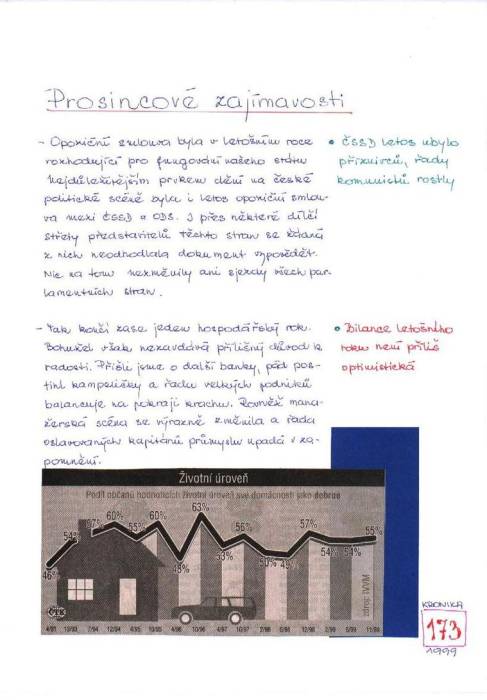 Prosincové zajímavosti
- Opoziční smlouva byla v letošním roce
rozhodující pro fungování našeho státu
Nejdůležitějším prvkem dění na české
politické scéně byla i letos opoziční smlou-
va mezi ČSSD a ODS. I přes některé dílčí
střety představitelů těchto stran se žádná
z nich neodhodlala dokument vypovědět.
Nic na tom nezměnily ani sjezdy všech par-
lamentních stran.
• ČSSD letos ubylo
příznivců, řady
komunistů rostly
- Tak končí zase jeden hospodářský rok.
Bohužel však nezavdává přílišný důvod k
radosti. Přišli jsme o další banky, pád pos-
tihl kampeličky a řadu velkých podniků
balancuje na pokraji krachu. Rovněž mana-
žerská scéna se výrazně změnila a řada
oslavovaných kapitánů průmyslu upadá v za-
pomnění.
• Bilance letošního
roku není příliš
optimistická
Životní úroveň
Podíl občanů hodnotících životní úroveň své domácnosti jako dobrou
46% 54% 57% 60% 55% 60% 48% 63% 53% 56% 50% 49% 57% 54% 54% 55%
zdroj: IVVM
ČTK
4/91 10/93 2/94 7/94 4/95 10/95 4/96 10/96 4/97 10/97 2/98 11/99
KRONIKA
173
1999